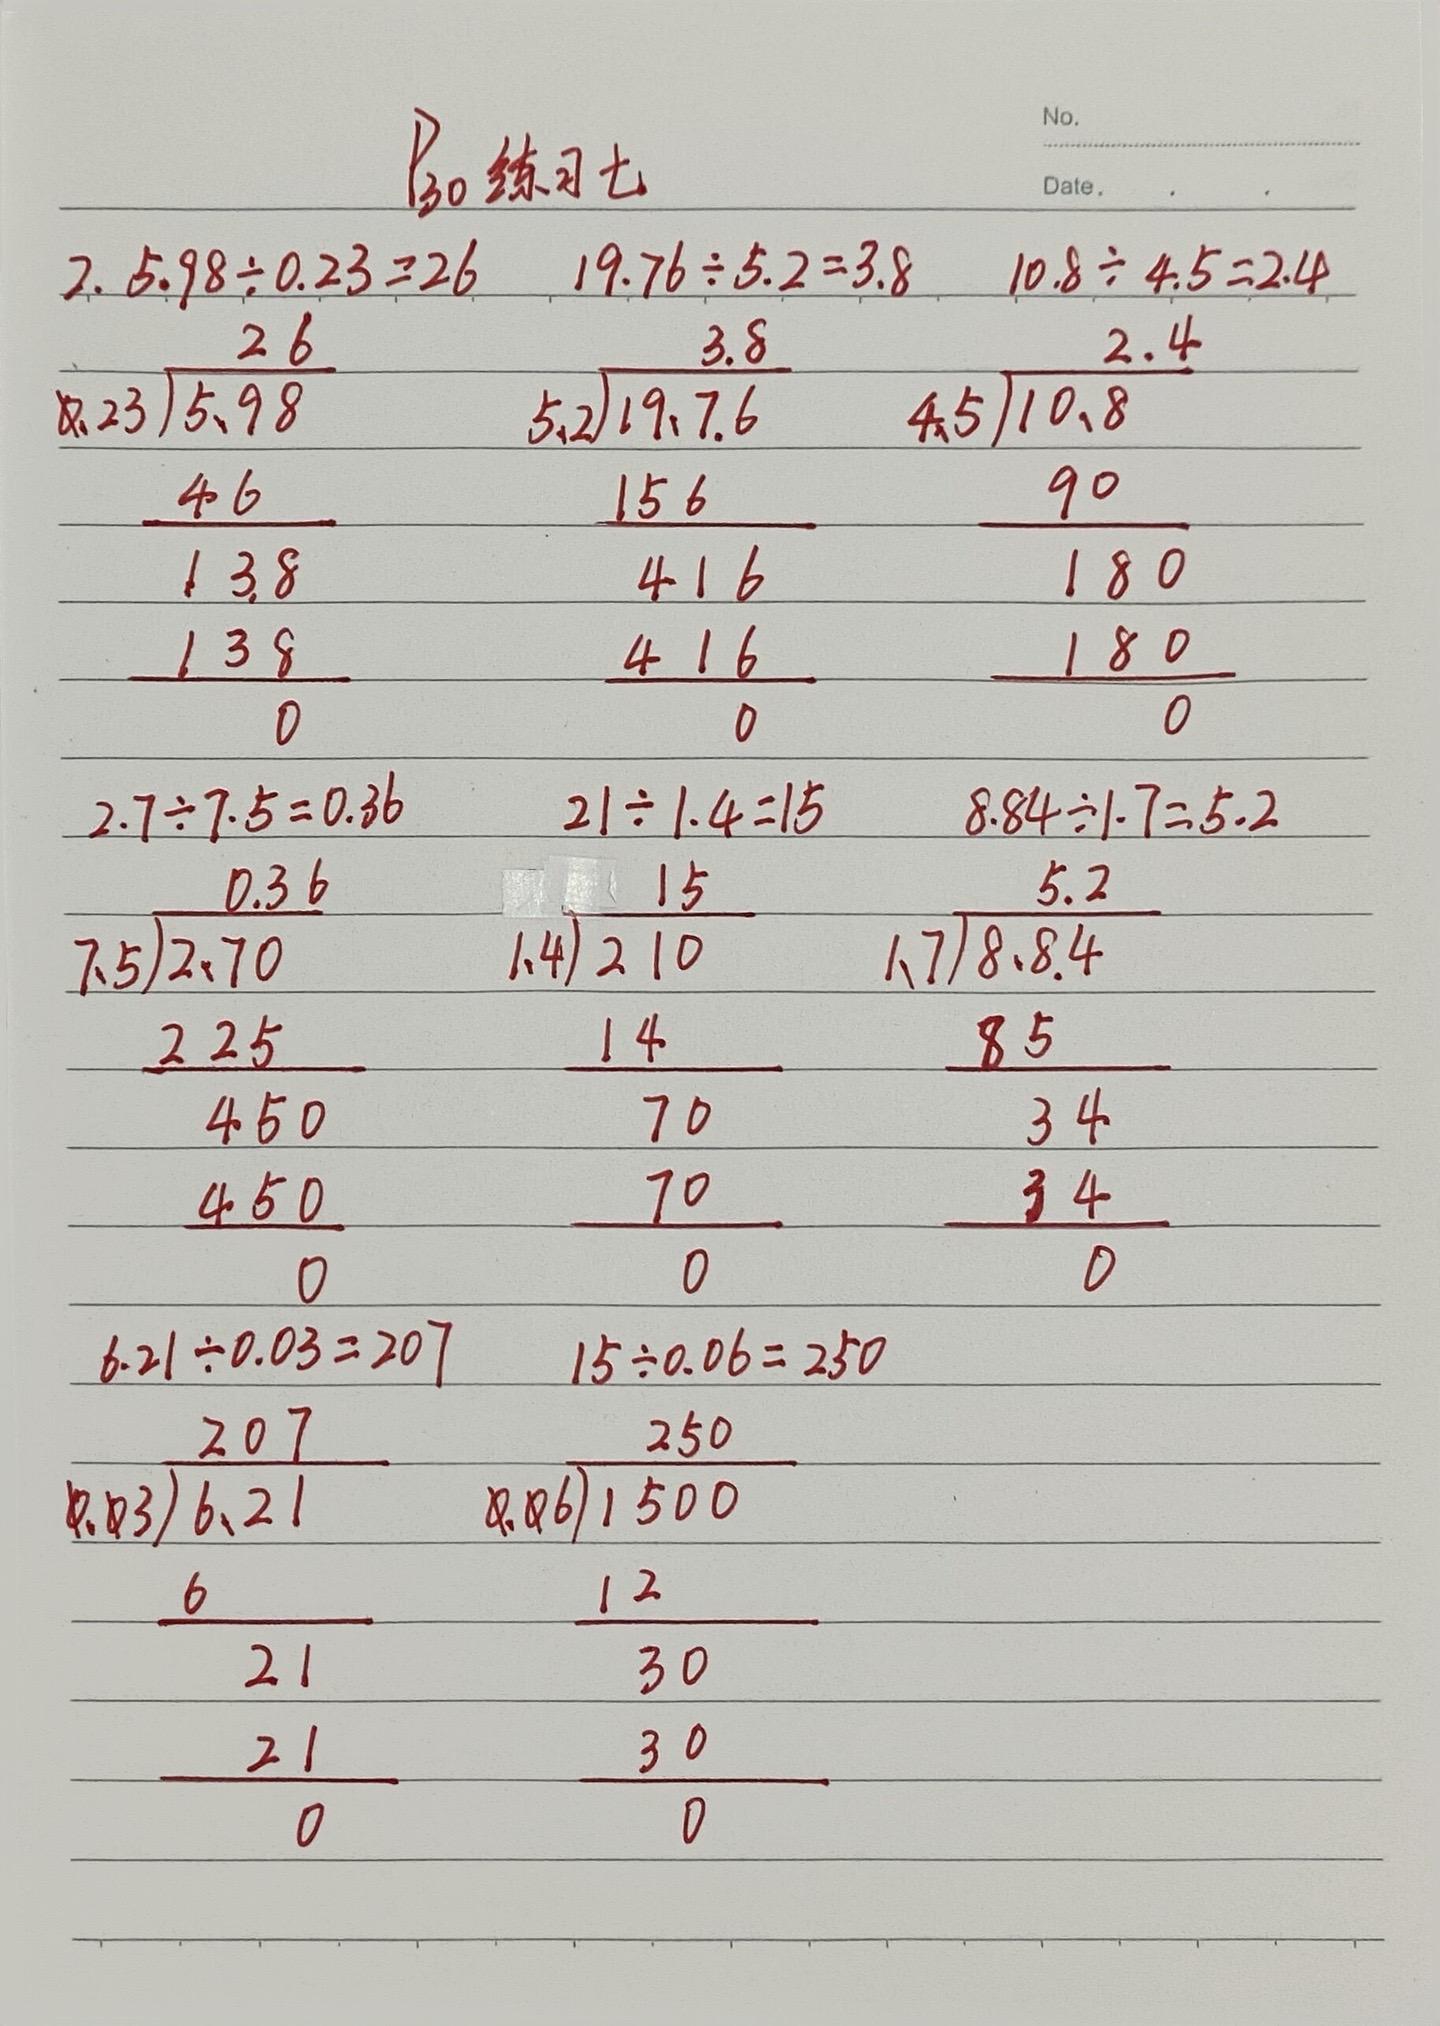 No.
P30 练习七
Date. . .
2. 5.98÷0.23=26 19.76÷5.2=3.8 10.8÷4.5=2.4
26 3.8 2.4
0.23)5.98 5.2)19.7.6 4.5)10.8
46 156 90
138 416 180
138 416 180
0 0 0
2.7÷7.5=0.36 21÷1.4=15 8.84÷1.7=5.2
0.36 15 5.2
7.5)2.70 1.4)210 1.7)8.8.4
225 14 85
450 70 34
450 70 34
0 0 0
6.21÷0.03=207 15÷0.06=250
207 250
0.03)6.21 0.06)1500
6 12
21 30
21 30
0 0